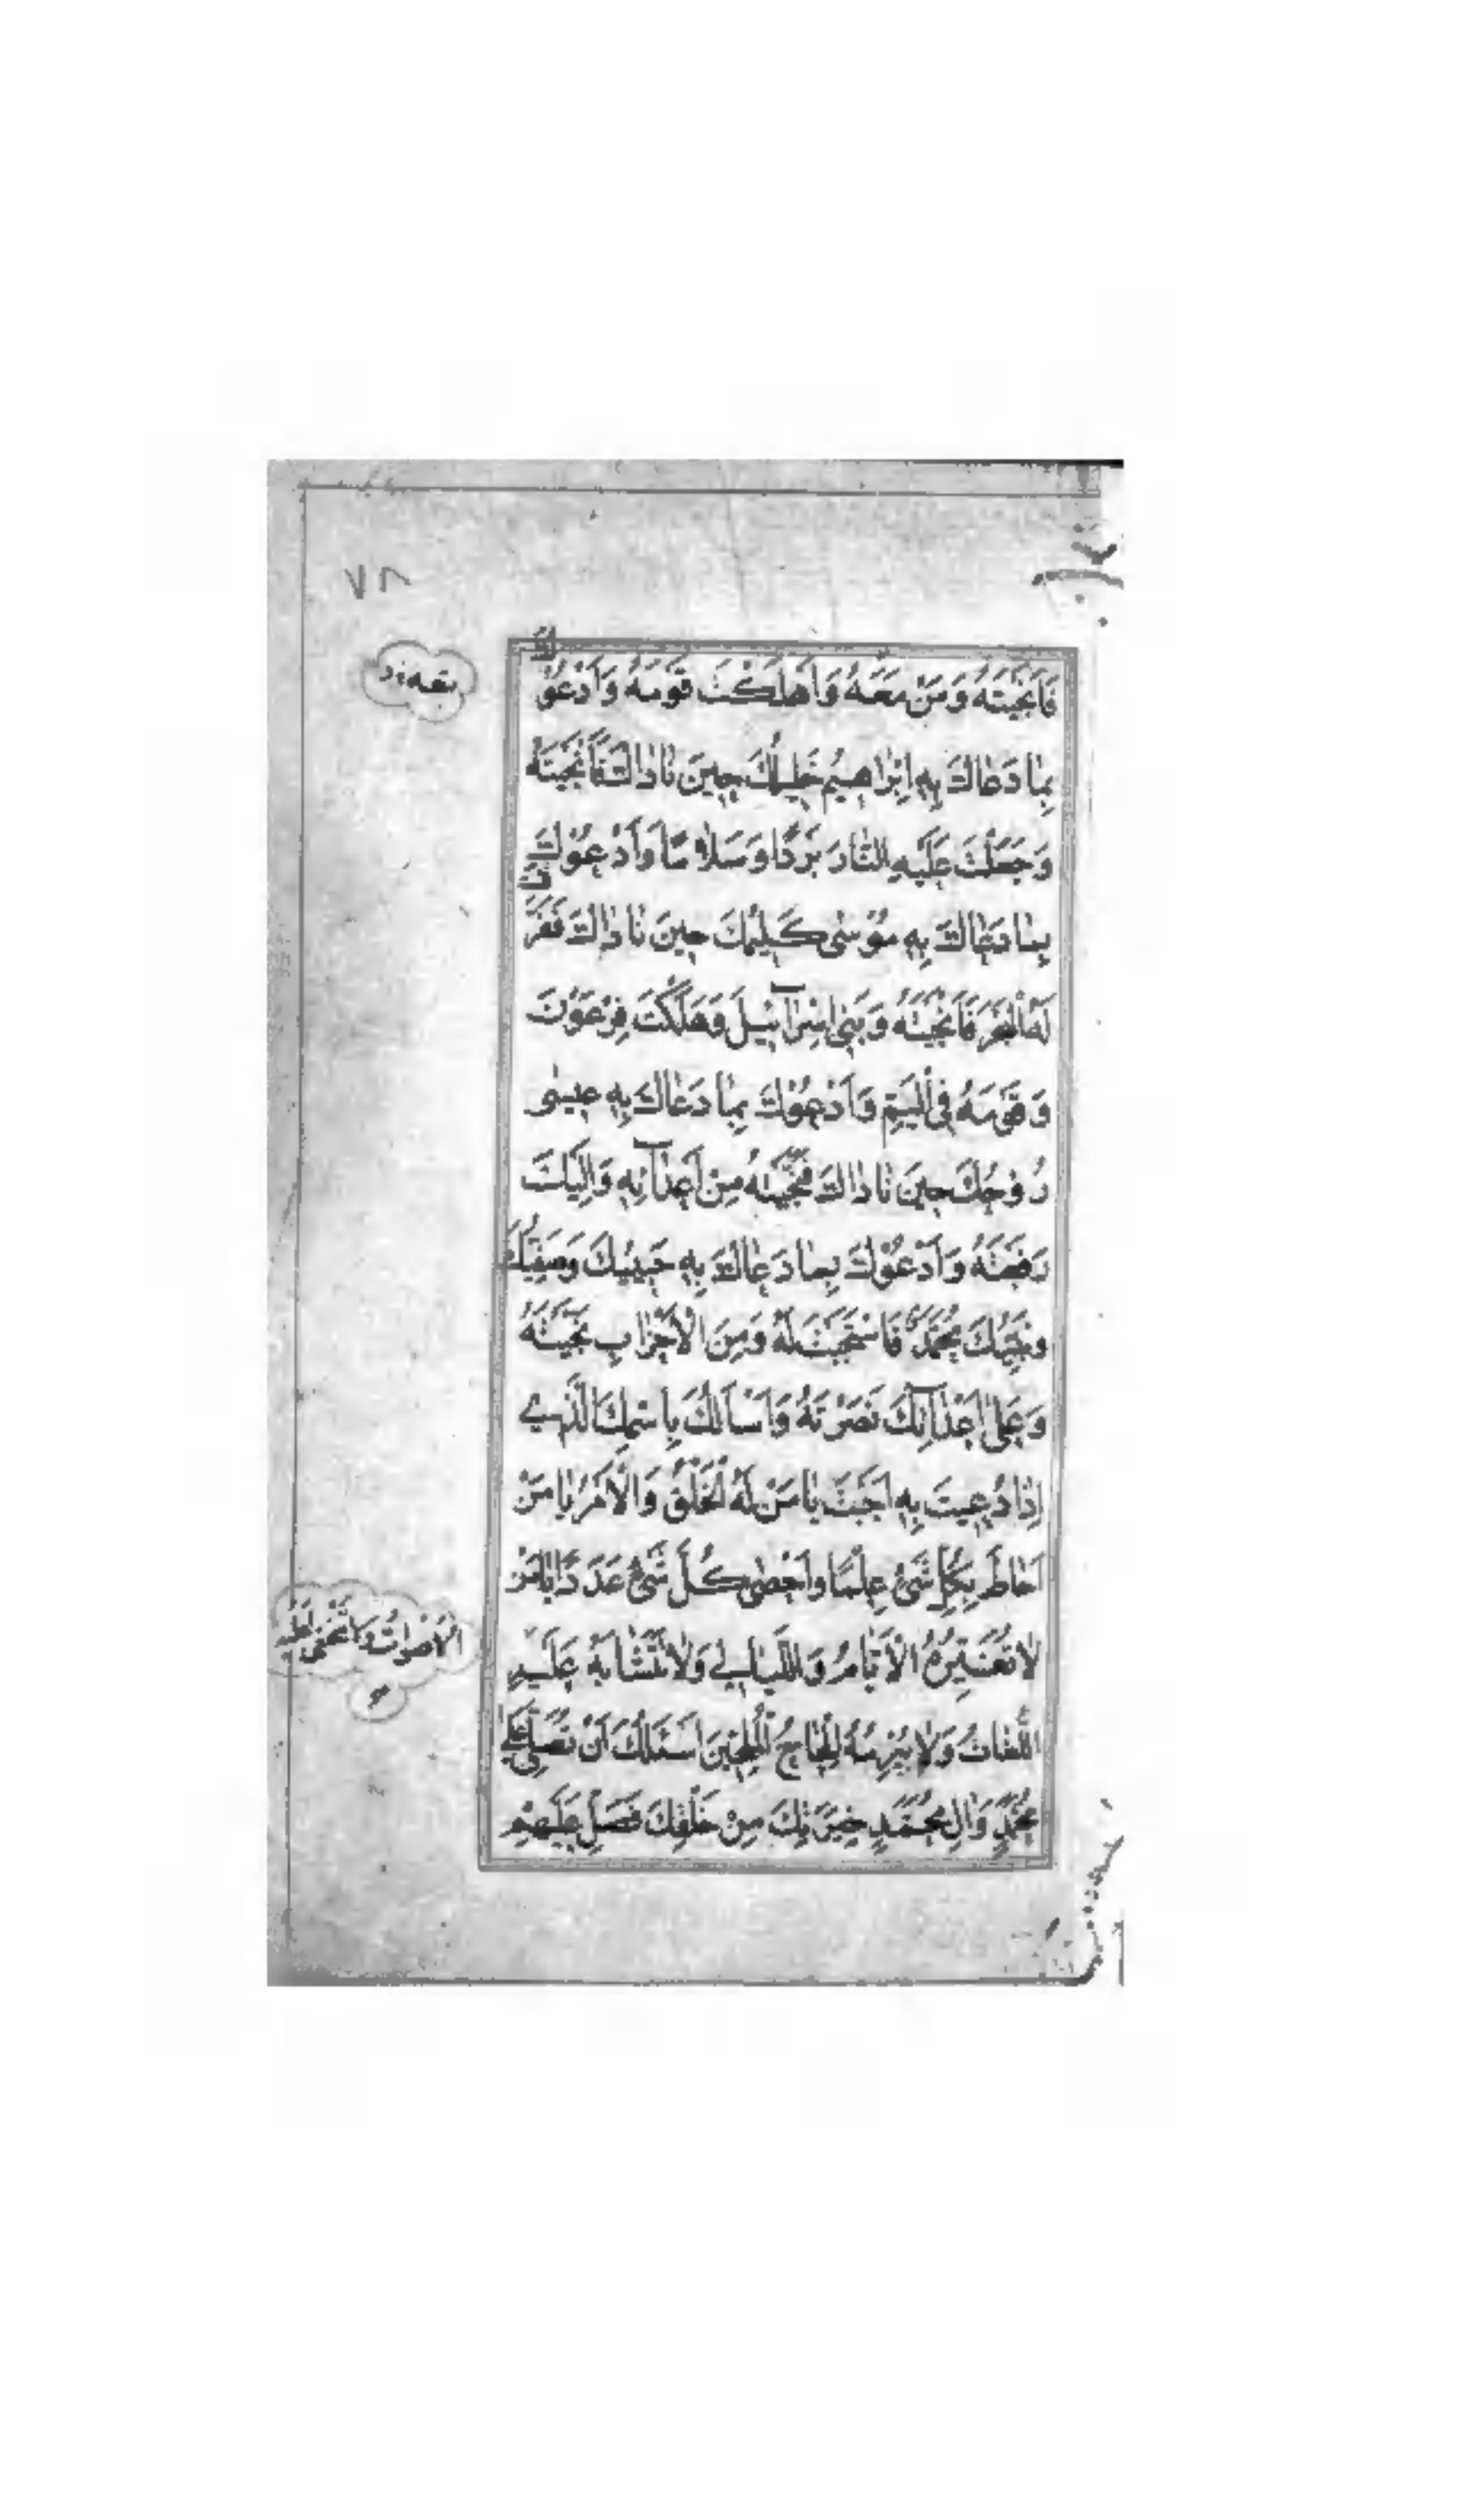 ٧٨
فَاَنْجَيْتَهُ وَمَنْ مَعَهُ وَاَهْلَكْتَ قَوْمَهُ وَاَدْعُوْكَ
بِمٰا دَعٰاكَ بِهِ اِبْرٰاهيمُ خَليلُكَ حينَ نٰادٰاكَ فَاَنْجَيْتَهُ
وَجَعَلْتَ عَلَيْهِ النّٰارَ بَرْدًا وَسَلٰامًا وَاَدْعُوْكَ
بِمٰا دَعٰاكَ بِهِ مُوْسٰى كَليمُكَ حينَ نٰادٰاكَ فَفَرَقْتَ
لَهُ الْبَحْرَ فَاَنْجَيْتَهُ وَبَنى اِسْرٰآئيلَ وَهَلَكْتَ فِرْعَوْنَ
وَقَوْمَهُ فِى الْيَمِّ وَاَدْعُوْكَ بِمٰا دَعٰاكَ بِهِ عيسٰى
رُوحُكَ حينَ نٰادٰاكَ فَنَجَّيْتَهُ مِنْ اَعْدٰآئِهِ وَاِلَيْكَ
رَفَعْتَهُ وَاَدْعُوْكَ بِمٰا دَعٰاكَ بِهِ حَبيبُكَ وَصَفِيُّكَ
وَنَبِيُّكَ مُحَمَّدٌ فَاسْتَجَبْتَ لَهُ وَمِنَ الْاَحْزٰابِ نَجَّيْتَهُ
وَعَلٰى اَعْدٰآئِكَ نَصَرْتَهُ وَاَسْاَلُكَ بِاسْمِكَ الَّذي
اِذٰا دُعيتَ بِهِ اَجَبْتَ يٰا مَنْ لَهُ الْخَلْقُ وَالْاَمْرُ يٰا مَنْ
اَحٰاطَ بِكُلِّ شَىْءٍ عِلْمًا وَاَحْصٰى كُلَّ شَىْءٍ عَدَدًا يٰا مَنْ
لٰا تُغَيِّرُهُ الْاَيّٰامُ وَاللَّيٰالي وَلٰا تَتَشٰابَهُ عَلَيْهِ
الْاَصْوٰاتُ وَلٰا تَخْفٰى عَلَيْهِ
اللُّغٰاتُ وَلٰا يُبْرِمُهُ اِلْحٰاحُ الْمُلِحّينَ اَسْئَلُكَ اَنْ تُصَلِّىَ عَلٰى
مُحَمَّدٍ وَاٰلِ مُحَمَّدٍ خِيَرَتِكَ مِنْ خَلْقِكَ فَصَلِّ عَلَيْهِمْ